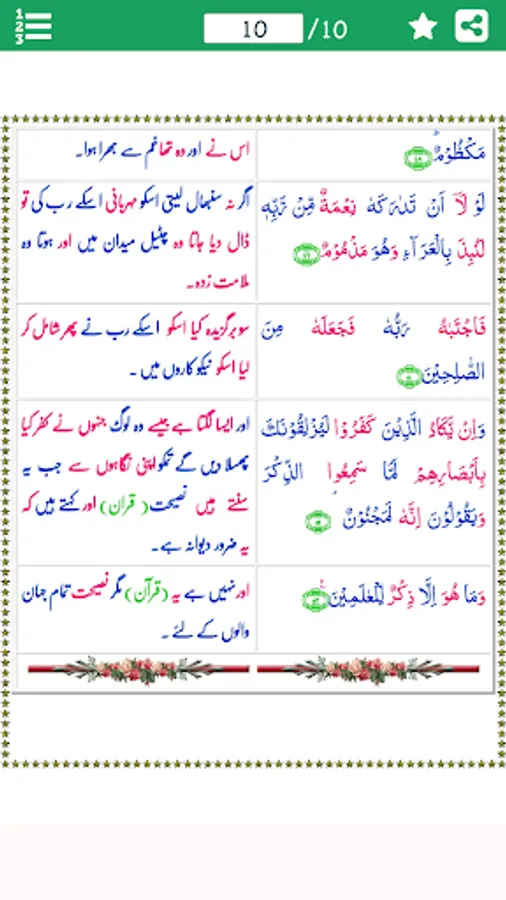 1
2
3
10 /10
مَكْظُوْمٌ ؕ۝۴۸
اس نے اور وہ تھا غم سے بھرا ہوا۔
لَوْ لَاۤ اَنْ تَدٰرَكَهٗ نِعْمَةٌ مِّنْ رَّبِّهٖ
لَنُبِذَ بِالْعَرَآءِ وَهُوَ مَذْمُوْمٌ ۝۴۹
اگر نہ سنبھال لیتی اسکو مہربانی اسکے رب کی تو
ڈال دیا جاتا وہ چٹیل میدان میں اور ہوتا وہ
ملامت زدہ۔
فَاجْتَبٰهُ رَبُّهٗ فَجَعَلَهٗ مِنَ
الصّٰلِحِيْنَ ۝۵۰
سو برگزیدہ کیا اسکو اسکے رب نے پھر شامل کر
لیا اسکو نیکو کاروں میں ۔
وَاِنْ يَّكَادُ الَّذِيْنَ كَفَرُوْا لَيُزْلِقُوْنَكَ
بِاَبْصَارِهِمْ لَمَّا سَمِعُوا الذِّكْرَ
وَيَقُوْلُوْنَ اِنَّهٗ لَمَجْنُوْنٌ ۘ۝۵۱
اور ایسا لگتا ہے جیسے وہ لوگ جنہوں نے کفر کیا
پھسلا دیں گے تمکو اپنی نگاہوں سے جب یہ
سنتے ہیں نصیحت( قران) اور کہتے ہیں کہ
یہ ضرور دیوانہ ہے۔
وَمَا هُوَ اِلَّا ذِكْرٌ لِّلْعٰلَمِيْنَ ۝۵۲
اور نہیں ہے یہ (قرآن) مگر نصیحت تمام جہان
والوں کے لئے ۔